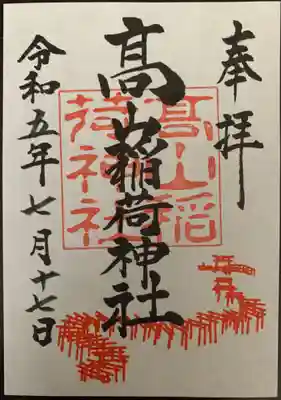 奉拝
髙山稲荷神社
髙山稲荷神社
令和五年七月十七日